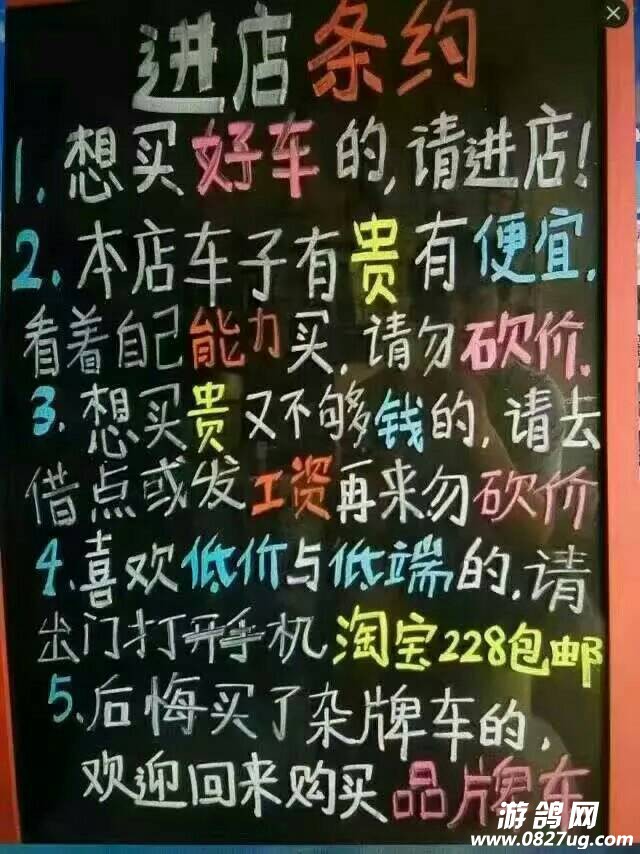 进店条约
1. 想买好车的,请进店!
2. 本店车子有贵有便宜.
看着自己能力买,请勿砍价.
3. 想买贵又不够钱的,请去
借点或发工资再来勿砍价
4. 喜欢低价与低端的,请
出门打开手机淘宝228包邮
5. 后悔买了杂牌车的,
欢迎回来购买品牌车
游鸽网
www.0827ug.com